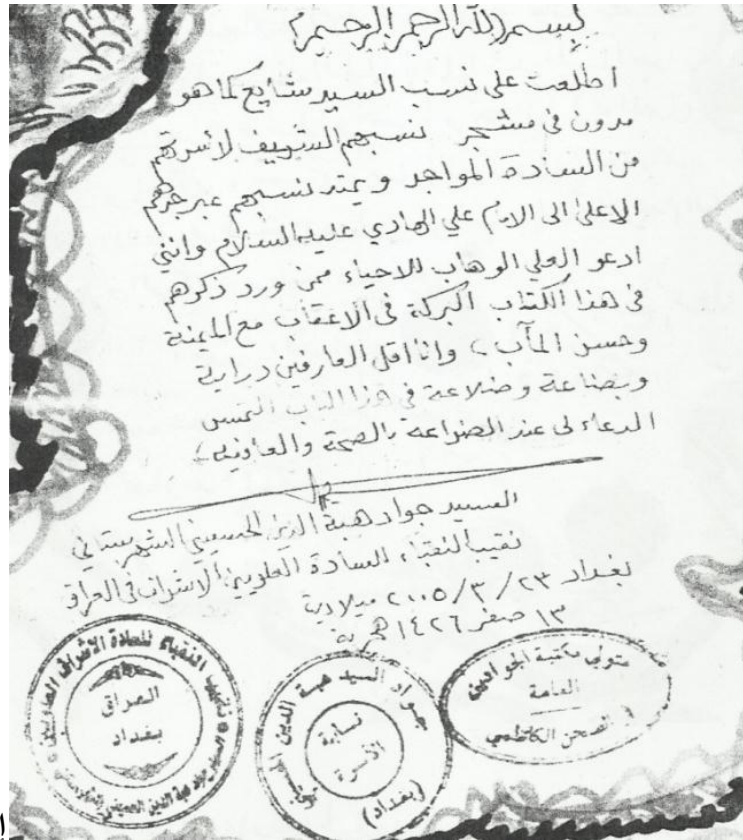 بسم الله الرحمن الرحيم
اطلعت على نسب السيد شايع كما هو
مدون في مشجر نسبهم الشريف لاسرتهم
من السادة المواجد ويمتد نسبهم عبر جدهم
الاعلى الى الامام علي الهادي عليه السلام وانني
ادعو العلي الوهاب للاحياء ممن ورد ذكرهم
في هذا الكتاب البركة في الاعقاب مع الميمنة
وحسن المآب، وانا اقل العارفين دراية
وبضاعة وضلاعة في هذا الباب التمس
الدعاء لي عند الضراعة بالصحة والعافية،
السيد جواد هبة الدين الحسيني الشهرستاني
نقيب النقباء للسادة العلويين الاشراف في العراق
بغداد ٢٣/٣/٢٠٠٥ ميلادية
١٣ صفر ١٤٢٦ هجرية
نقيب النقباء للسادة الاشراف العلويين
العراق
بغداد
جواد السيد هبة الدين الحسيني
نسابة
الأسرة
(بغداد)
متولي مكتبة الجوادين
العامة
في الصحن الكاظمي